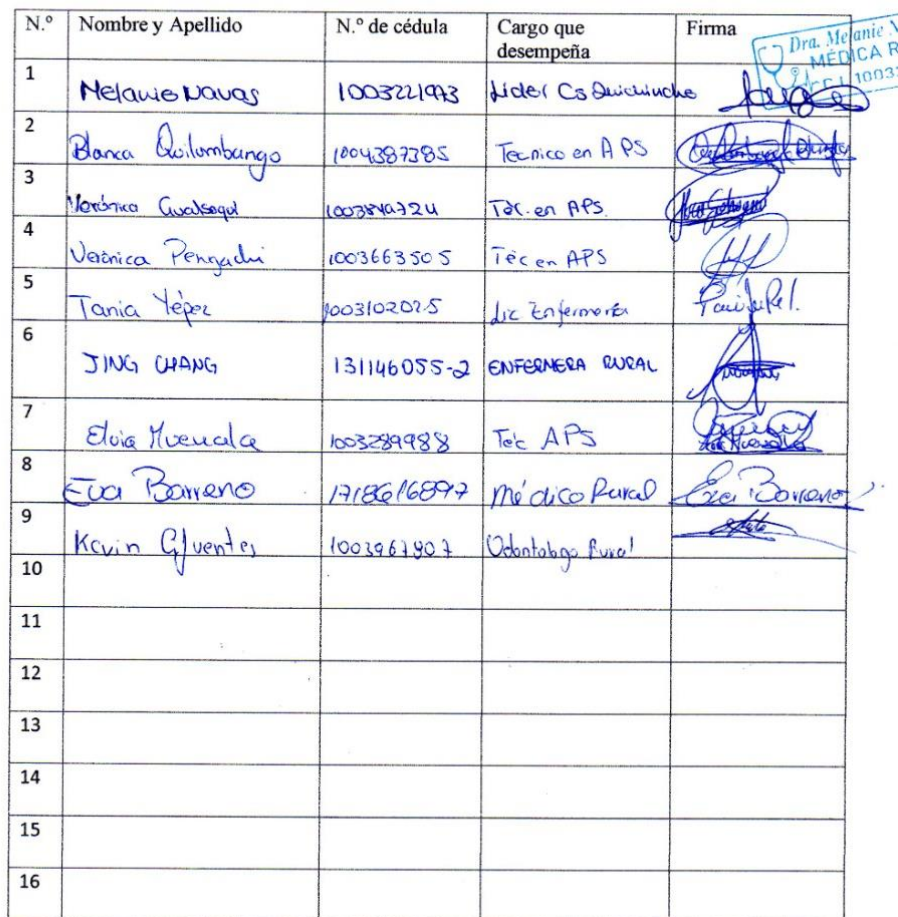 N.º Nombre y Apellido N.º de cédula Cargo que desempeña Firma
Dra. Melanie N
MÉDICA R
C.I. 10032
1 Melanie Navas 1003221973 Lider Cs Quichinche
2 Blanca Quilumbango 1004387385 Tecnico en APS
3 Verónica Gualsaqui 1003840724 Tec. en APS.
4 Verónica Pengachi 1003663505 Téc en APS
5 Tania Yépez 1003102025 Lic Enfermería
6 JING CHANG 131146055-2 ENFERMERA RURAL
7 Elvia Muenala 1003289988 Tec APS
8 Eva Barreno 1718616897 Médico Rural Eva Barreno
9 Kevin Cifuentes 1003967907 Odontologo Rural
10
11
12
13
14
15
16